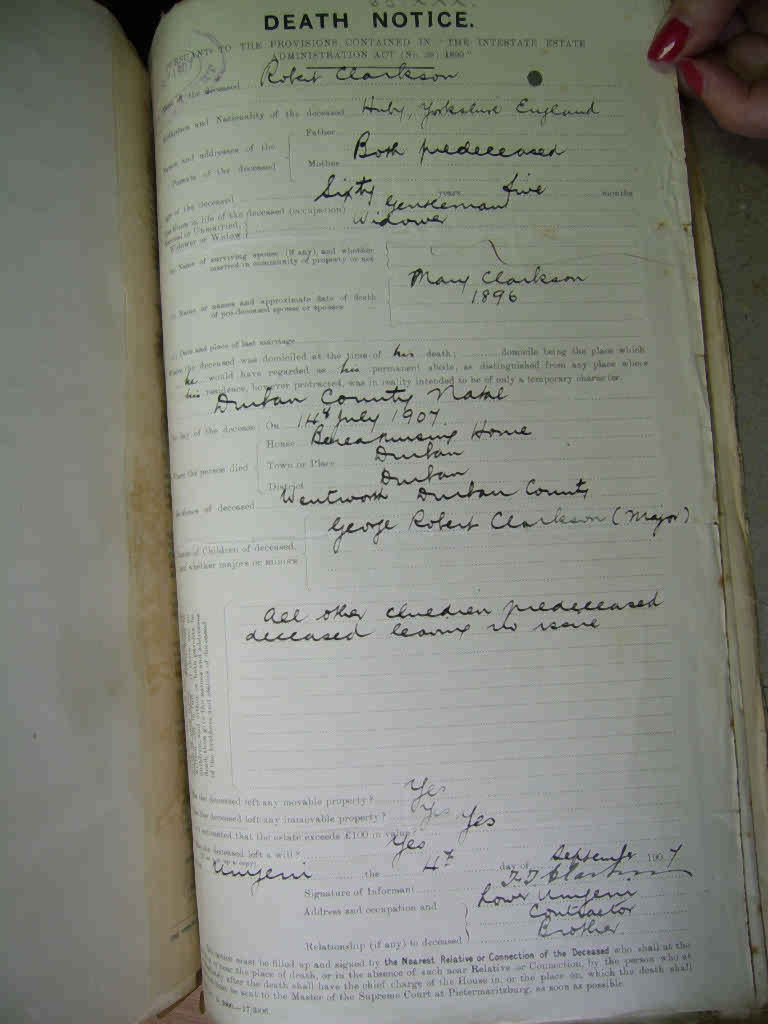 DEATH NOTICE.
TO THE PROVISIONS CONTAINED IN "THE INTESTATE ESTATE
ADMINISTRATION ACT
of the deceased Robert Clarkson
and Nationality of the deceased Huby, Yorkshire England
and addresses of the Parents of the deceased
Father
Mother Both predeceased
of the deceased Sixty years five months
in life of the deceased (occupation) Gentleman
or Unmarried, Widower or Widow Widower
Name of surviving spouse (if any), and whether
married in community of property or not
Name or names and approximate date of death
of pre-deceased spouse or spouses
Mary Clarkson
1896
Date and place of last marriage
the deceased was domiciled at the time of his death; domicile being the place which
he would have regarded as his permanent abode, as distinguished from any place where
his residence, however protracted, was in reality intended to be of only a temporary character.
Durban County Natal
day of the decease On 14th July 1907.
the person died
House Berea Nursing Home
Town or Place Durban
District Durban
of deceased Wentworth Durban County
of Children of deceased,
and whether majors or minors
George Robert Clarkson (Major)
All other children predeceased
deceased leaving no issue
the deceased left any movable property? Yes
the deceased left any immovable property? Yes
estimated that the estate exceeds £100 in value? Yes
the deceased left a will? Yes
Umgeni the 4th day of September 1907
Signature of Informant Clarkson
Address and occupation and Lower Umgeni
Contractor
Relationship (if any) to deceased Brother
notice must be filled up and signed by the Nearest Relative or Connection of the Deceased who shall at the
the place of death, or in the absence of such near Relative or Connection, by the person who at
after the death shall have the chief charge of the House in, or the place on, which the death shall
must be sent to the Master of the Supreme Court at Pietermaritzburg, as soon as possible.